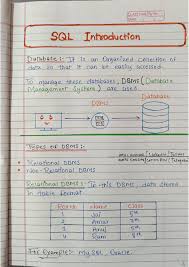 SQL Introduction
Database :- It is an Organized Collection of
data so that it can be easily accessed.
To manage these databases, DBMS (Database
Management System) are used.
DBMS
Database
Types of DBMS:-
Relational DBMS
Non-Relational DBMS
Relational DBMS :- In this DBMS, data stored
in table format.
Name Class
1 Jai 5th
2
3 Anuj 5th
4 Ram 8th
For Example:- MySQL, Oracle.